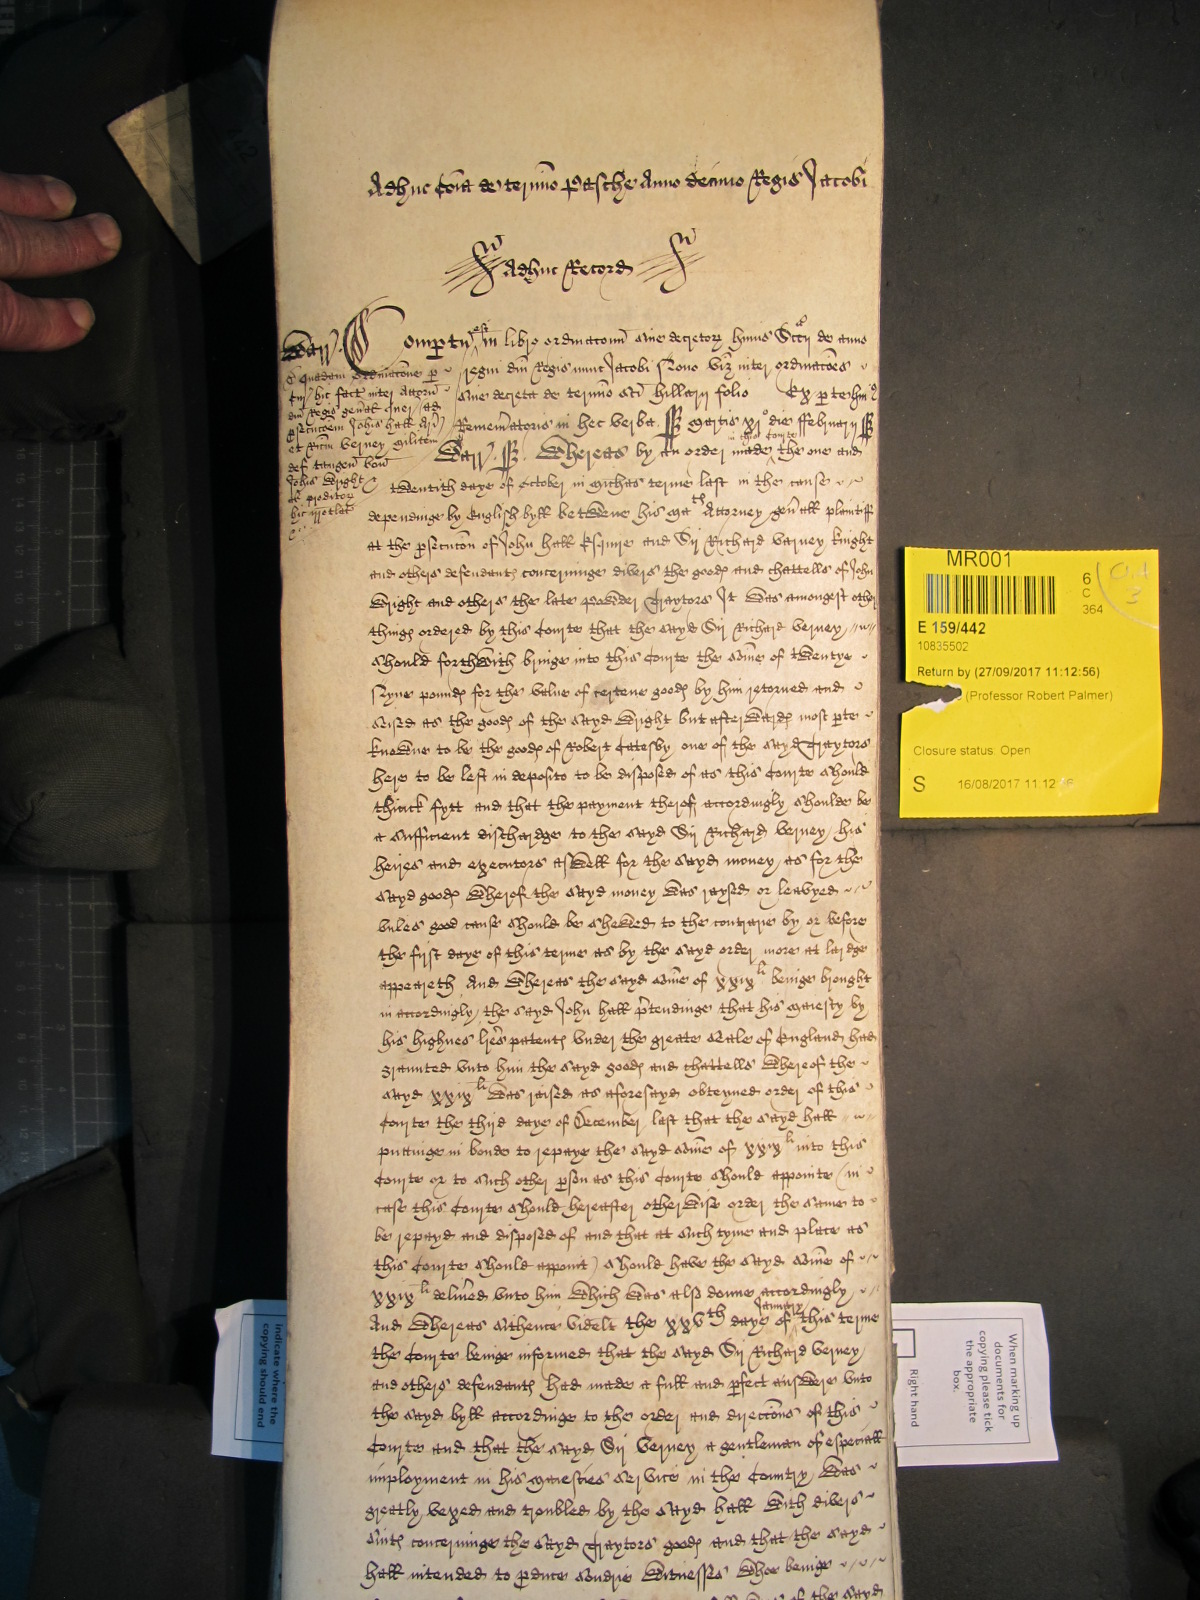 Adhuc Coia de termio Pasche Anno decimo Regis Jacobi
Adhuc Record
Warr
Comptu est in libro ordinacom sive decretor huius Sccij de anno
regni dni Regis nunc Jacobi Nono viz inter ordinacoes
sive decreta de termio sci Hillarij folio Ex pte
Rememoratoris in hec verba ss Martis xj o die Februarij ss
Warr ss Whereas by an order made in this Courte the one and
twentith daye of October in Michas terme last in the cause
dependinge by English byll betwene his ma ts Attorney gen'all plaintiff
at the psecucon of John Hall Esquire and Sir Richard Varney knight
and others defendants concerninge divers the goods and chattells of John
Wright and others the late powder Traytors It was amongest other
things ordered by this Courte that the sayd Sir Richard Verney
should forthwith bringe into this Courte the some of twentye
Nyne pounds for the value of certene goods by him retorned and
as the goods of the sayd Wright but afterwards most pte
knowne to be the goods of Robert Catesby one of the sayd Traytors
here to be left in deposito to be disposed of as this Courte should
thinck fytt and that the payment therof accordingly shoulde be
a sufficient dischardge to the sayd Sir Richard Verney his
heires and executors aswell for the sayd money as for the
sayd goods wherof the sayd money was raysed or leavyed
vnles good cause should be shewed to the contrarie by or before
the first daye of this terme as by the sayd order more at lardge
appeareth And whereas the sayd some of xxix li beinge brought
in accordingly the sayd John Hall p'tendinge that his Maiesty by
his highnes lres patents vnder the greate Seale of England had
graunted vnto him the sayd goods and chattells whereof the
sayd xxix li was raised as aforesayd obteyned order of this
Courte the third daye of December last that the sayd Hall
puttinge in bonde to repaye the sayd some of xxix li into this
Courte or to such other pson as this Courte should appointe in
case this Courte should hereafter otherwise order the same to
be repayd and disposed of and that at such tyme and place as
this Courte should appoint) should have the sayd some of
xxix li deliv'ed vnto him which was also donne accordingly
And whereas sithence videlt the xxv th daye of January this terme
the Courte beinge informed that the sayd Sir Richard Verney
and others defendants had made a full and pfect answere vnto
the sayd byll accordinge to the order and direccons of this
Courte and that the sayd Sir Verney a gentleman of especiall
imployment in his Maiesties service in the Country was
greatly vexed and troubled by the sayd Hall with divers
suits concerninge the sayd Traytors goods and that the sayd
Hall intended to pduce sundrie witnesses whoe beinge
of the sayd
C Quadam Ordinacone p
Cur hic fact inter Attorn
dni Regis gen'al quer ad
psecucoem Johis Hall Ar
et Ricm Verney militem
def tangen bon
Johis Wright
al proditor
hic irrotlat
MR001
6
C
364
E 159/442
10835502
Return by (27/09/2017 11:12:56)
(Professor Robert Palmer)
Closure status: Open
S
16/08/2017 11:12
indicate where the
copying should end
When marking up
documents for
copying please tick
the appropriate
box.
Right hand